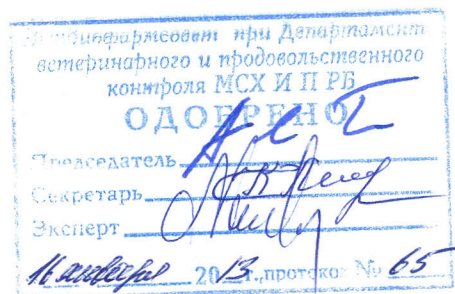 при Департамент
ветеринарного и продовольственного
контроля МСХ И П РБ
ОДОБРЕНО
Председатель
Секретарь
Эксперт
16 января 2013 г., протокол № 65